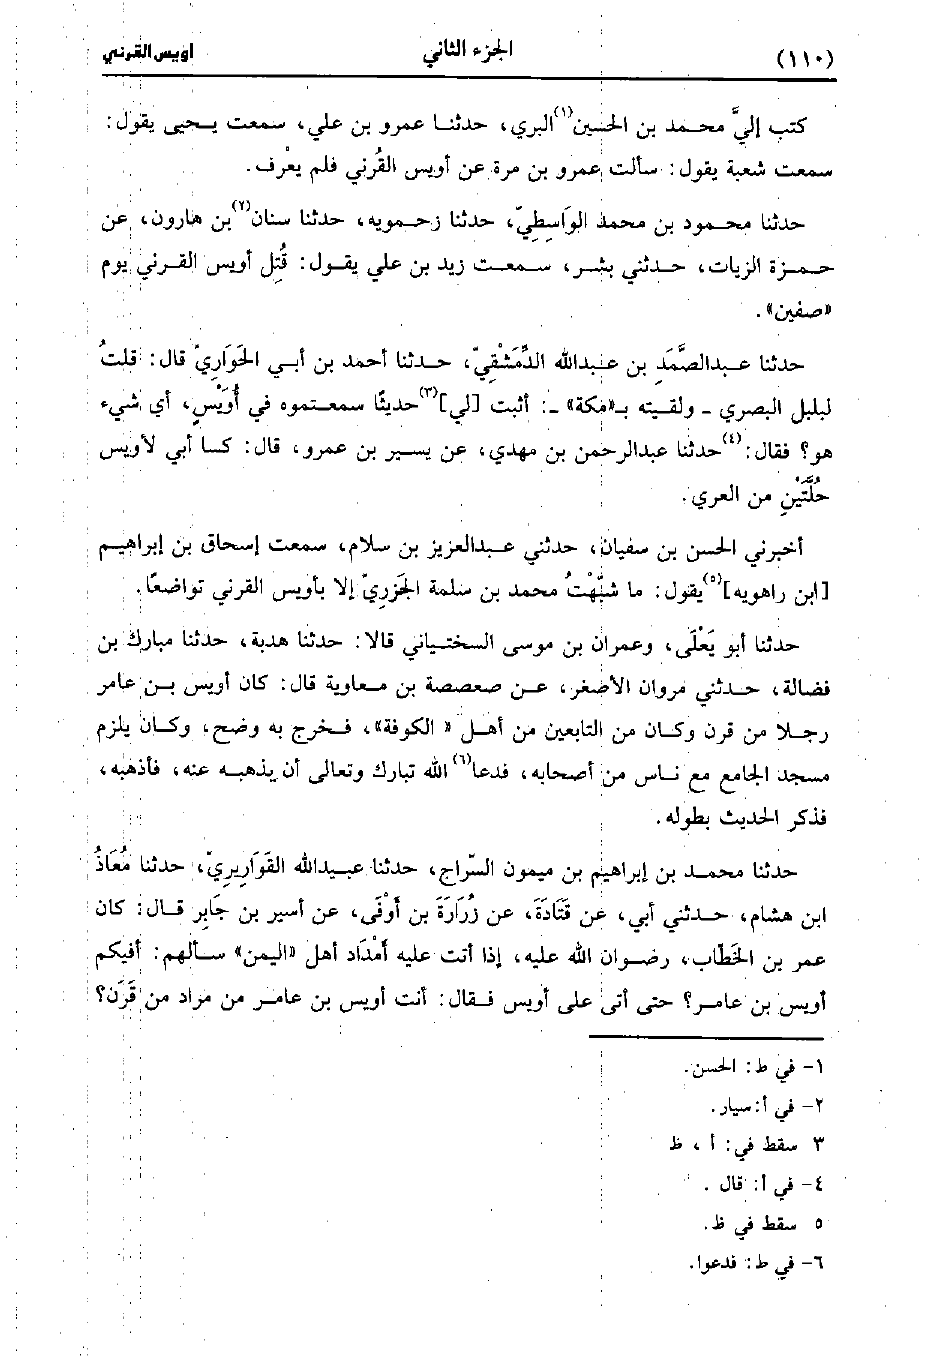 (١١٠) الجزء الثاني اويس القرني
كتب إليَّ محمد بن الحسين(١) البري، حدثنا عمرو بن علي، سمعت يحيى يقول:
سمعت شعبة يقول: سألت عمرو بن مرة عن أويس القُرني فلم يعْرف.
حدثنا محمود بن محمد الوَاسِطيّ، حدثنا زحمويه، حدثنا سنان(٢) بن هارون، عن
حمزة الزيات، حدثني بشر، سمعت زيد بن علي يقول: قُتل أويس القرني يوم
«صفين».
حدثنا عبدالصَّمَدِ بن عبدالله الدِّمَشْقيّ، حدثنا أحمد بن أبي الحَوَاريّ قال: قلتُ
لبليل البصري - ولقيته بـ«مكة» -: أثبت [لي](٣) حديثًا سمعتموه في أُوَيْسٍ، أي شيء
هو؟ فقال:(٤) حدثنا عبدالرحمن بن مهدي، عن يسير بن عمرو، قال: كسا أبي لأويس
حُلَّتَيْنِ من العري.
أخبرني الحسن بن سفيان، حدثني عبدالعزيز بن سلام، سمعت إسحاق بن إبراهيم
[ابن راهويه](٥) يقول: ما شبَّهْتُ محمد بن سلمة الجَزريّ إلا بأويس القرني تواضعًا.
حدثنا أبو يَعْلَى، وعمران بن موسى السختياني قالا: حدثنا هدبة، حدثنا مبارك بن
فضالة، حدثني مروان الأصْغر، عن صعصصة بن معاوية قال: كان أويس بن عامر
رجلا من قرن وكان من التابعين من أهل « الكوفة»، فخرج به وضح، وكان يلزم
مسجد الجامع مع ناس من أصحابه، فدعا(٦) الله تبارك وتعالى أن يذهبه عنه، فأذهبه،
فذكر الحديث بطوله.
حدثنا محمد بن إبراهيم بن ميمون السّراج، حدثنا عبيدالله القَوَارِيريّ، حدثنا مُعَاذُ
ابن هشام، حدثني أبي، عن قَتَادَةَ، عن زُرَارَةَ بن أوْفَى، عن أسير بن جَابِر قال: كان
عمر بن الخَطاب، رضوان الله عليه، إذا أتت عليه أمْدَاد أهل «اليمن» سألهم: أفيكم
أويس بن عامر؟ حتى أتى على أويس فقال: أنت أويس بن عامر من مراد من قَرَن؟
١- في ط: الحسن.
٢- في أ: سيار.
٣ سقط في: أ ، ظ
٤- في أ: قال .
٥ سقط في ظ.
٦- في ط: فدعوا.